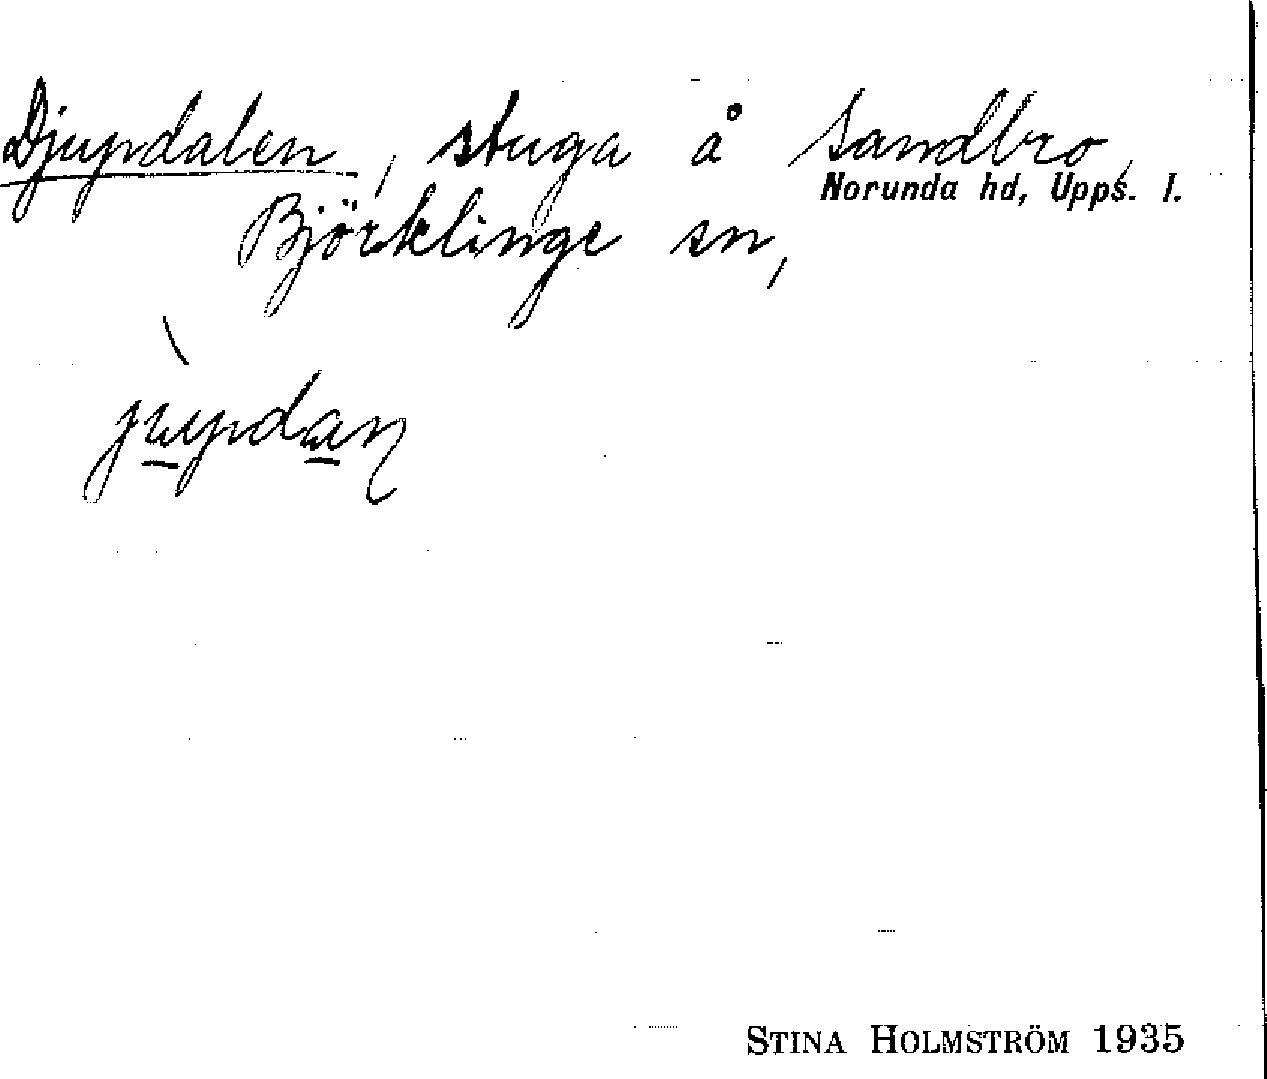 Djupdalen, stuga å Sandbro,
Norunda hd, Upps. l.
Björklinge sn,
jụpdaṇ
STINA HOLMSTRÖM 1935